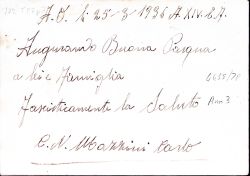 A.O. li 25-3-1936 A.XIV. E.A.
Augurando Buona Pasqua
a lei e Famiglia
Fascisticamente la Saluto
C.N. Mazzini Carlo